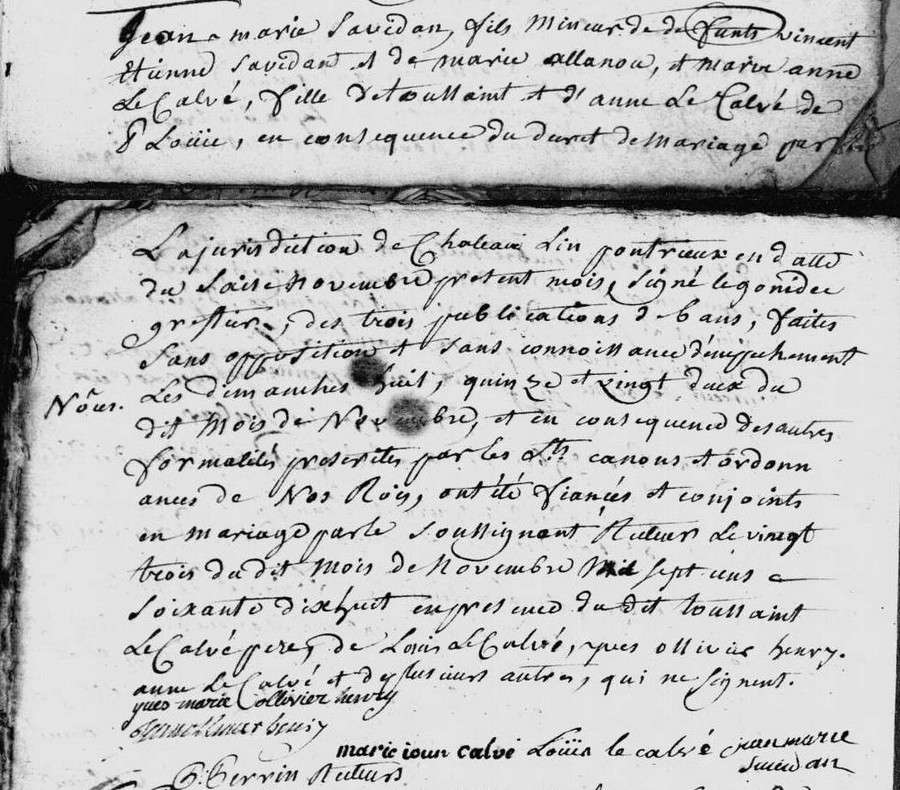 Jean marie Savidan, fils mineur de defunts vincent
Etienne Savidan et de marie allanou, et marie anne
Le Calvé, fille de toussaint et d'anne Le Calvé de
Louïe, en consequence du decret de mariage par
La jurisdiction de Chateau Lin pontrieux en datte
du Saise novembre present mois, signé legonidec
greffier, des trois publications de bans, faites
Sans opposition et sans connoissance d'empechement
Les dimanches huit, quinze et vingt deux du
Nôces.
dit mois de Novembre, et en consequence des autres
formalités prescrites par les Sts canons et ordonn
ances de Nos Rois, ont été fiancés et conjoints
en mariage par le soussignant Recteur Le vingt
trois du dit mois de Novembre Mil Sept cens
Soixante dix huit en presence du dit toussaint
Le Calvé pere, de Louis Le Calvé, yves ollivier henry.
anne Le Calvé et de plusieurs autres, qui ne signent.
yves marie ollivier henry
henry
marie ioun calvé Louïs le calvé jean marie
Savidan
Perrin Recteur